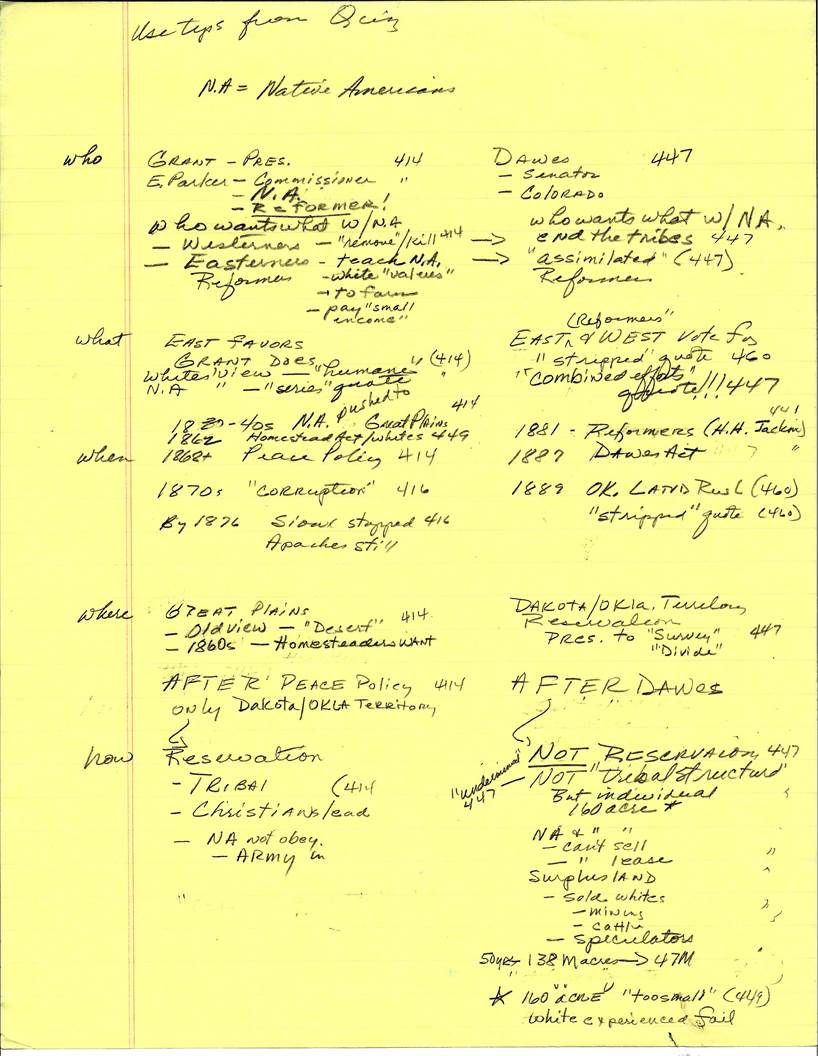 Use tips from Quiz
N.A = Native Americans
who GRANT - PRES. 414
E. Parker - Commissioner "
- N.A.
- REFORMER!
who wants what w/ N.A
- Westerners - "remove"/kill 414 →
- Easterners - teach N.A. →
Reformers - white "values"
→ to farm
- pay "small
income"
DAWES 447
- Senator
- COLORADO
who wants what w/ NA.
end the tribes 447
"assimilated" (447)
Reformers
what EAST FAVORS
GRANT DOES
whites' view - "humane" (414)
N.A " - "series" quote "
(Reformers")
EAST & WEST Vote for
"stripped" quote 460
"combined efforts"
quote!!! 447
pushed to
N.A. Great Plains 414
1862 Homestead Act/whites 449
when 1868+ Peace Policy 414
1870s "CORRUPTION" 416
By 1876 Sioux stopped 416
Apaches still
441
1881 - Reformers (H.H. Jackson)
1887 DAWES Act "
1889 OK. LAND Rush (460)
"stripped" quote (460)
where GREAT PLAINS 414
- Old view - "Desert"
- 1860s - Homesteaders WANT
AFTER PEACE Policy 414
only Dakota/OKLA TERRITORY
DAKOTA/Okla. Territory
Reservation
PRES. to "Survey" 447
"Divide"
AFTER DAWES
how Reservation
- TRIBAL (414
- Christians lead
- NA not obey.
- ARMY in
"
"undermined" 447
NOT RESERVAION 447
- NOT "Tribal structure"
But individual "
160 acre *
NA & " "
- can't sell "
- " lease "
Surplus LAND "
- sold whites
- mining "
- cattle
- speculators "
50yrs 138 M acres → 47M "
* 160 "ACRE" "too small" (449)
white experienced fail